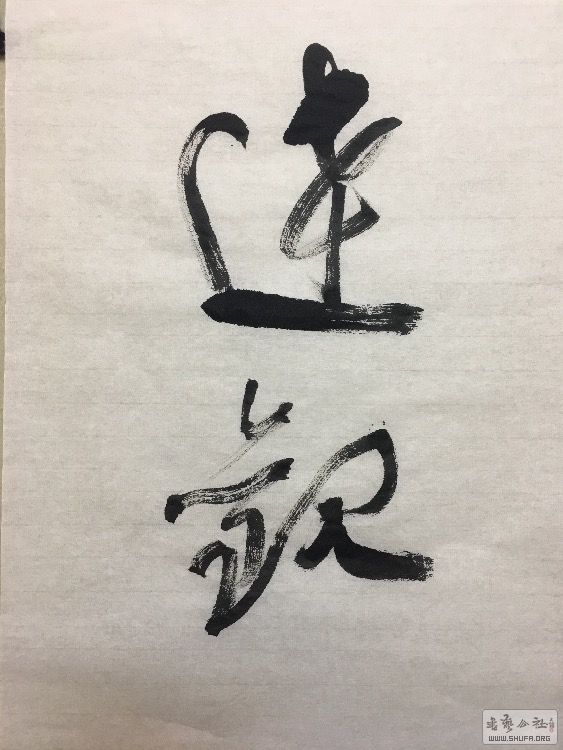 達観
书艺公社
WWW.SHUFA.ORG